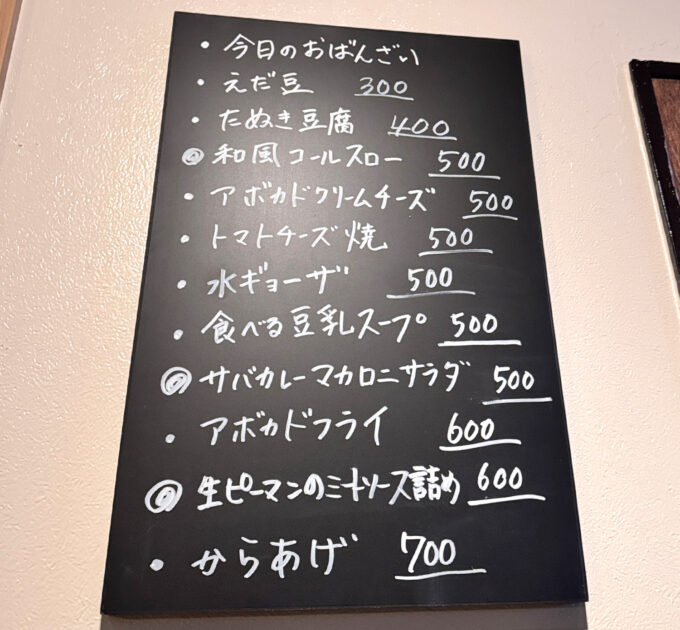 ・今日のおばんざい
・えだ豆 300
・たぬき豆腐 400
◎和風コールスロー 500
・アボカドクリームチーズ 500
・トマトチーズ焼 500
・水ギョーザ 500
・食べる豆乳スープ 500
◎サバカレーマカロニサラダ 500
・アボカドフライ 600
◎生ピーマンのミートソース詰め 600
・からあげ 700